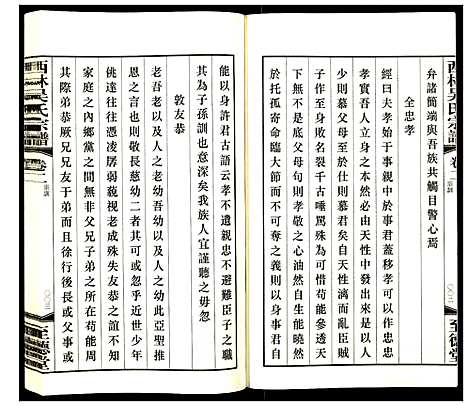 西林吳氏宗譜 卷二 宗訓
弁諸簡端與吾族共觸目警心焉
全忠孝
經曰夫孝始于事親中於事君蓋移孝可以作忠
孝實吾人立身之本然必由天性中發出來可見
人幼則慕父母至於仕則慕君矣自天性漓而亂臣賊
下無不是底父母句則孝敬之心油然自生能曉然
子至於身敗名裂千古唾罵殊為可惜苟能參透天
於托孤寄命臨大節而不可奪之義則所以事君自
能以身許君古語云孝不遺親忠不避難臣子之職
其為子孫訓也意深矣我族人宜謹聽之毋忽
敦友恭
老吾老以及人之老幼吾幼以及人之幼此亞聖推
恩之言也即此可悟敬長慈幼二者其可或忽乎近世少年
佻達往往恣凌虐孱弱藐視老成殊失友恭之誼不知
家庭之內鄉黨之間無非父兄子弟之所在苟能周
其際弟恭厥兄兄友于弟其餘年次行後長或父事或
西林吳氏宗譜 卷二 宗訓
至德堂
至德堂